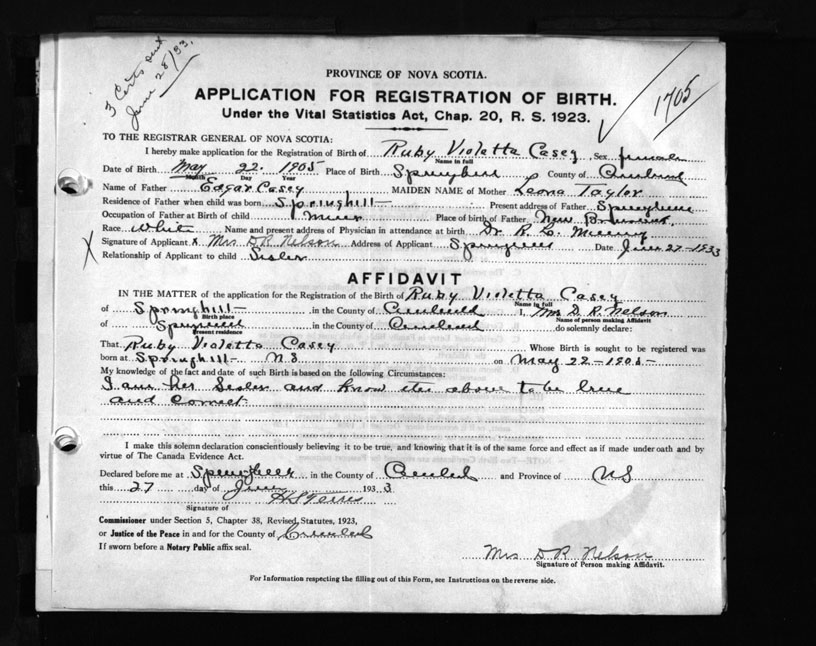 3 Certs sent
June 28/33.
1705
PROVINCE OF NOVA SCOTIA.
APPLICATION FOR REGISTRATION OF BIRTH.
Under the Vital Statistics Act, Chap. 20, R. S. 1923.
TO THE REGISTRAR GENERAL OF NOVA SCOTIA:
I hereby make application for the Registration of Birth of Ruby Violetta Casey Sex female
Name in full
Date of Birth May 22 1905 Place of Birth Springhill County of Cumberland
Month Day Year
Name of Father Edgar Casey MAIDEN NAME of Mother Leona Taylor
Residence of Father when child was born Springhill Present address of Father Springhill
Occupation of Father at Birth of child Miner Place of birth of Father New Brunswick
Race White Name and present address of Physician in attendance at birth Dr R. L.
Signature of Applicant X Mrs D R Nelson Address of Applicant Springhill Date June 27-1933
X Relationship of Applicant to child Sister
AFFIDAVIT
IN THE MATTER of the application for the Registration of the Birth of Ruby Violetta Casey
Name in full
of Springhill in the County of Cumberland I, Mrs D. R. Nelson
Birth place Name of person making Affidavit
of Springhill in the County of Cumberland do solemnly declare:
Present residence
That Ruby Violetta Casey Whose Birth is sought to be registered was
born at Springhill N.S on May 22-1905-
My knowledge of the fact and date of such Birth is based on the following Circumstances:
I am her Sister and know the above to be true
and Correct
I make this solemn declaration conscientiously believing it to be true, and knowing that it is of the same force and effect as if made under oath and by
virtue of The Canada Evidence Act.
Declared before me at Springhill in the County of Cumberland and Province of NS
this 27 day of June 1933
Signature of
Commissioner under Section 5, Chapter 38, Revised Statutes, 1923,
or Justice of the Peace in and for the County of Cumberland
If sworn before a Notary Public affix seal.
Mrs D R Nelson
Signature of Person making Affidavit.
For Information respecting the filling out of this Form, see Instructions on the reverse side.